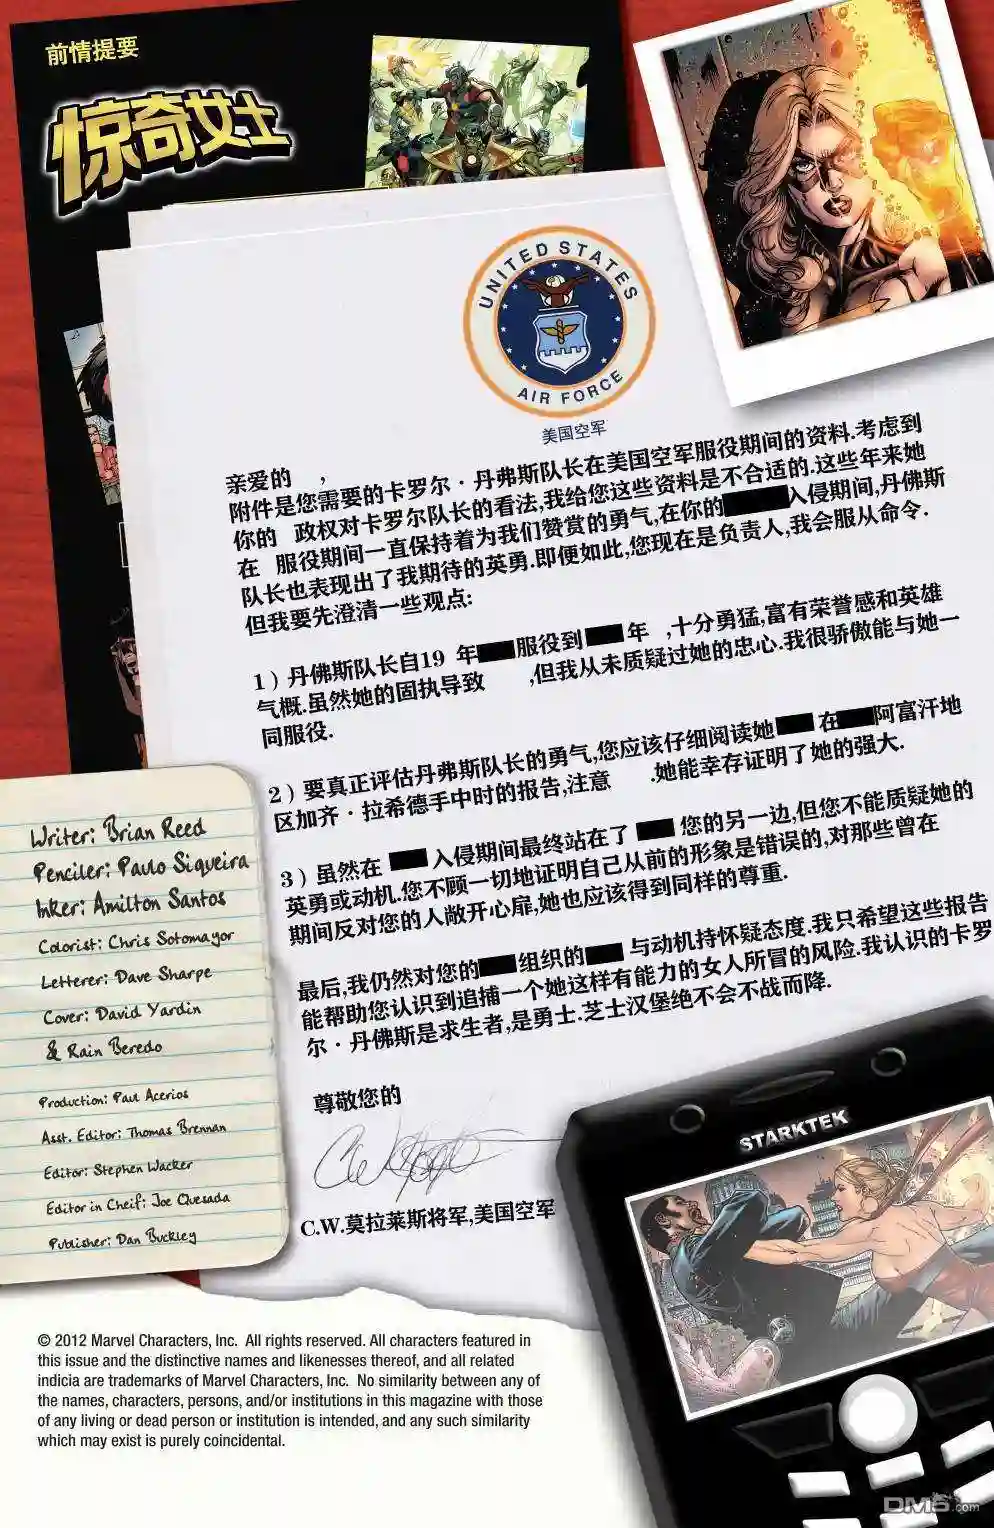 前情提要
惊奇女士
UNITED STATES
AIR FORCE
美国空军
亲爱的 ,
附件是您需要的卡罗尔·丹弗斯队长在美国空军服役期间的资料.考虑到
你的 政权对卡罗尔队长的看法,我给您这些资料是不合适的.这些年来她
在 服役期间一直保持着为我们赞赏的勇气,在你的 入侵期间,丹佛斯
队长也表现出了我期待的英勇.即便如此,您现在是负责人,我会服从命令.
但我要先澄清一些观点:
1) 丹佛斯队长自19 年 服役到 年 ,十分勇猛,富有荣誉感和英雄
气概.虽然她的固执导致 ,但我从未质疑过她的忠心.我很骄傲能与她一
同服役.
2) 要真正评估丹弗斯队长的勇气,您应该仔细阅读她 在 阿富汗地
区加齐·拉希德手中时的报告,注意 .她能幸存证明了她的强大.
3) 虽然在 入侵期间最终站在了 您的另一边,但您不能质疑她的
英勇或动机.您不顾一切地证明自己从前的形象是错误的,对那些曾在
期间反对您的人敞开心扉,她也应该得到同样的尊重.
最后,我仍然对您的 组织的 与动机持怀疑态度.我只希望这些报告
能帮助您认识到追捕一个她这样有能力的女人所冒的风险.我认识的卡罗
尔·丹佛斯是求生者,是勇士.芝士汉堡绝不会不战而降.
尊敬您的
C.W.莫拉莱斯将军,美国空军
Writer: Brian Reed
Penciler: Paulo Siqueira
Inker: Amilton Santos
Colorist: Chris Sotomayor
Letterer: Dave Sharpe
Cover: David Yardin
& Rain Beredo
Production: Paul Acerios
Asst. Editor: Thomas Brennan
Editor: Stephen Wacker
Editor in Cheif: Joe Quesada
Publisher: Dan Buckley
STARKTEK
© 2012 Marvel Characters, Inc. All rights reserved. All characters featured in
this issue and the distinctive names and likenesses thereof, and all related
indicia are trademarks of Marvel Characters, Inc. No similarity between any of
the names, characters, persons, and/or institutions in this magazine with those
of any living or dead person or institution is intended, and any such similarity
which may exist is purely coincidental.
DM5.com